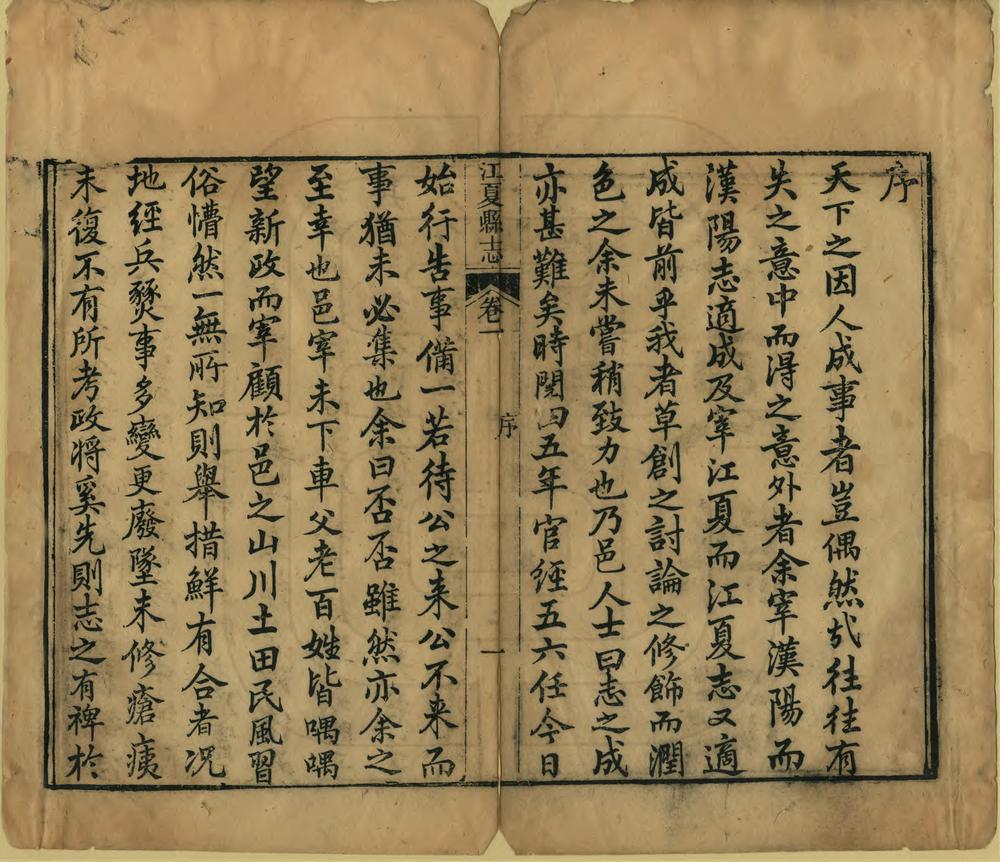 序
天下之因人成事者豈偶然㢤往往有
失之意中而得之意外者余宰漢陽而
漢陽志適成及宰江夏而江夏志又適
成皆前乎我者草創之討論之修飾而潤
色之余未嘗稍致力也乃邑人士曰志之成
亦甚難矣時閱四五年官經五六任今日
江夏縣志 卷一 序 一
始行告事備一若待公之来公不来而
事猶未必集也余曰否否雖然亦余之
至幸也邑宰未下車父老百姓皆喁喁
望新政而宰顧於邑之山川土田民風習
俗懵然一無所知則舉措鮮有合者况
地經兵燹事多變更廢墜未修瘡痍
未復不有所考政將奚先則志之有裨於